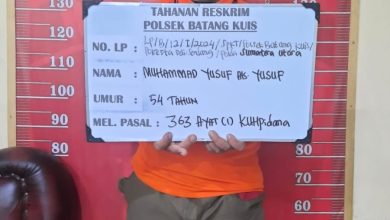 TAHANAN RESKRIM
POLSEK BATANG KUIS
NO. LP : LP/B/12/I/2024/SPKT/Polsek Batang Kuis/
Polresta Deli Serdang/Polda Sumatera Utara
NAMA : MUHAMMAD YUSUF als YUSUF
UMUR : 54 TAHUN
MEL. PASAL : 363 AYAT (1) KUHPidana